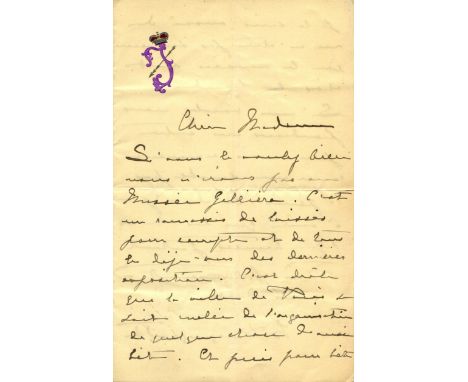 Chère Madame
Si vous le voulez bien
nous n'irons pas au
Musée Galliera. C'est
un ramassis de laissés
pour compte et de tous
les déjà-vus des dernières
expositions. C'est drôle
que la ville de Paris se
soit mêlée de l'organisation
de quelque chose d'aussi
bête. Et puis pour